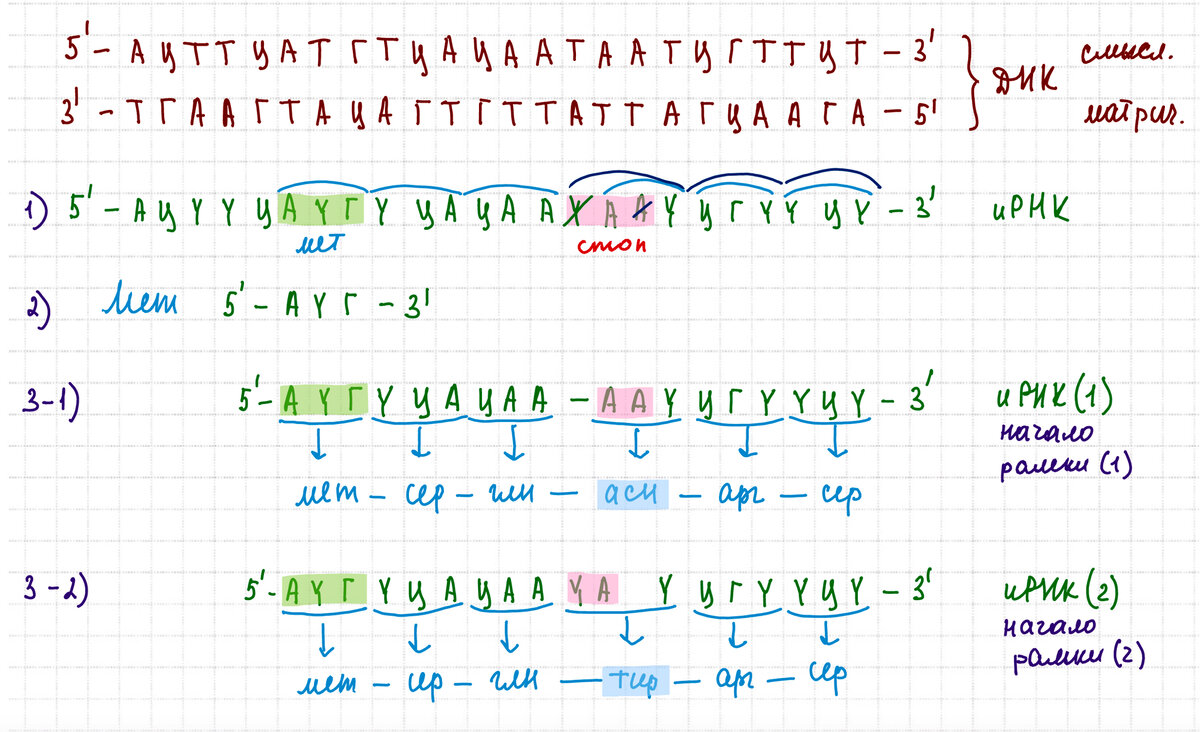 5' - А Ц Т Т Ц А Т Г Т Ц А Ц А А Т А А Т Ц Г Т Т Ц Т - 3' смысл.
ДНК
3' - Т Г А А Г Т А Ц А Г Т Г Т Т А Т Т А Г Ц А А Г А - 5' матрич.
1) 5' - А Ц У У Ц А У Г У Ц А Ц А А У А А У Ц Г У У Ц У - 3' иРНК
мет стоп
2) Мет 5' - А У Г - 3'
3-1) 5' - А У Г У Ц А Ц А А - А А У Ц Г У У Ц У - 3' иРНК (1)
начало
рамки (1)
мет - сер - глн - асн - арг - сер
3-2) 5' - А У Г У Ц А Ц А А У А У Ц Г У У Ц У - 3' иРНК (2)
начало
рамки (2)
мет - сер - глн - тир - арг - сер